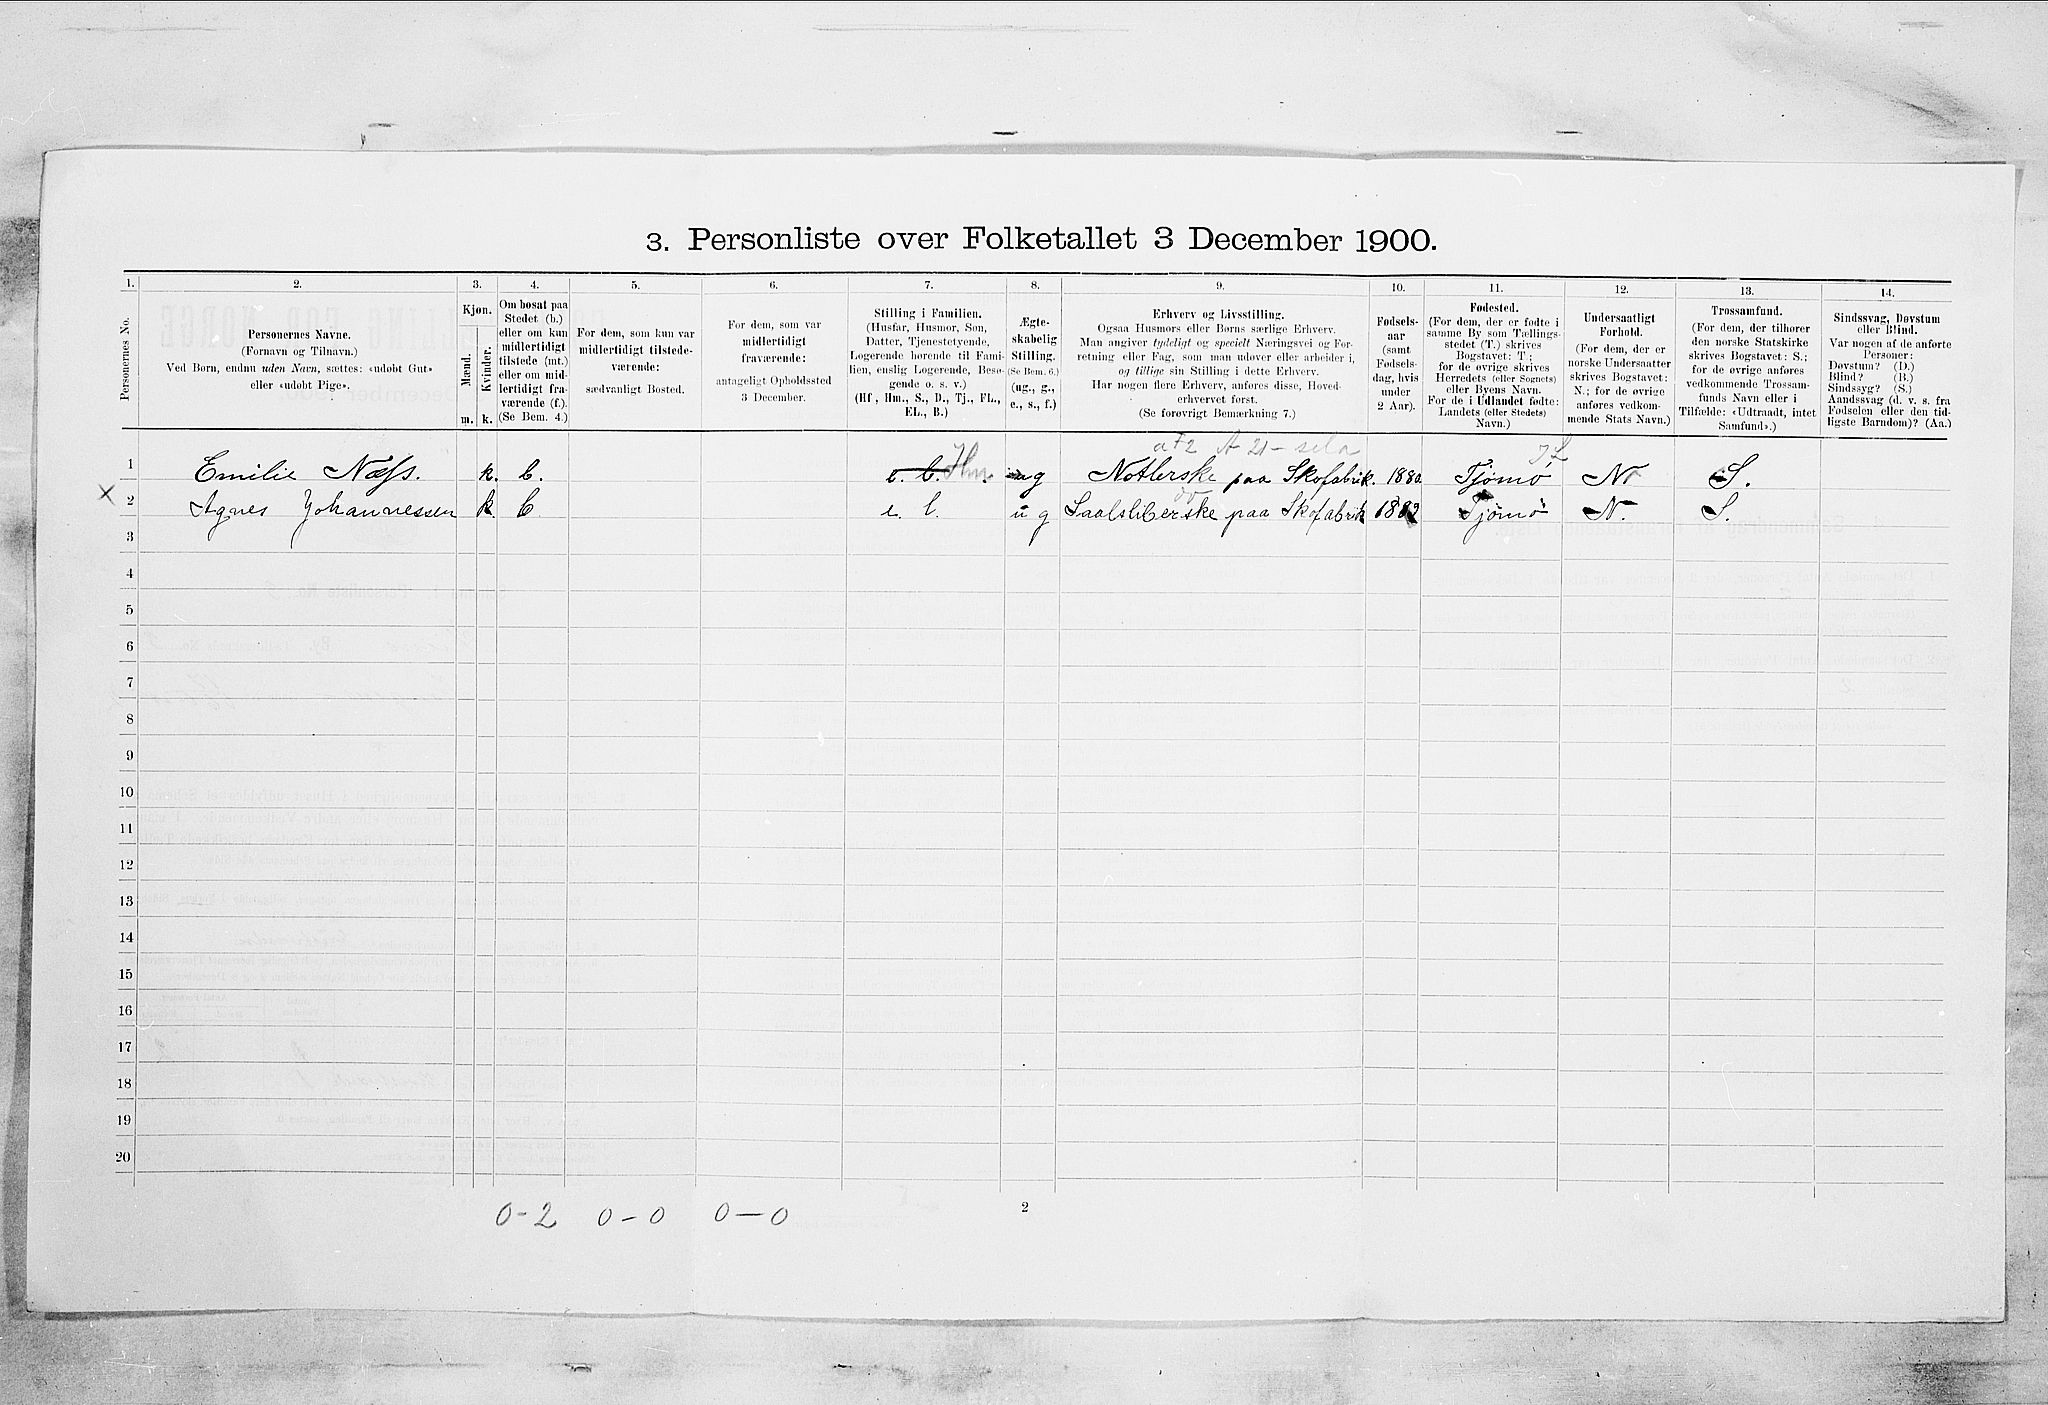 3. Personliste over Folketallet 3 December 1900.
1. 2. 3. 4. 5. 6. 7. 8. 9. 10. 11. 12. 13. 14.
Personernes No.
Personernes Navne.
(Fornavn og Tilnavn.)
Ved Børn, endnu uden Navn, sættes: «udøbt Gut»
eller «udøbt Pige».
Kjøn.
Mænd.
Kvinder.
m. k.
Om bosat paa
Stedet (b.)
eller om kun
midlertidigt
tilstede (mt.)
eller om mid-
lertidigt fra-
værende (f.).
(Se Bem. 4.)
For dem, som kun var
midlertidigt tilstede-
værende:
sædvanligt Bosted.
For dem, som var
midlertidigt
fraværende:
antageligt Opholdssted
3 December.
Stilling i Familien.
(Husfar, Husmor, Søn,
Datter, Tjenestetyende,
Logerende hørende til Fami-
lien, enslig Logerende, Besø-
gende o. s. v.)
(Hf., Hm., S., D., Tj., FL.,
EL., B.)
Ægte-
skabelig
Stilling.
(Se Bem. 6.)
(ug., g.,
e., s., f.)
Erhverv og Livsstilling.
Ogsaa Husmors eller Børns særlige Erhverv.
Man angiver tydeligt og specielt Næringsvei og For-
retning eller Fag, som man udøver eller arbeider i,
og tillige sin Stilling i dette Erhverv.
Har nogen flere Erhverv, anføres disse, Hoved-
erhvervet først.
(Se forøvrigt Bemærkning 7.)
Fødsels-
aar
(samt
Fødsels-
dag, hvis
under
2 Aar).
Fødested.
(For dem, der er fødte i
samme By som Tællings-
stedet (T.) skrives
Bogstavet: T.;
for de øvrige skrives
Herredets (eller Sognets)
eller Byens Navn.
For de i Udlandet fødte:
Landets (eller Stedets)
Navn.)
Undersaatligt
Forhold.
(For dem, der er
norske Undersaatter
skrives Bogstavet:
N.; for de øvrige
anføres vedkom-
mende Stats Navn.)
Trossamfund.
(For dem, der tilhører
den norske Statskirke
skrives Bogstavet: S.;
for de øvrige anføres
vedkommende Trossam-
funds Navn eller i
Tilfælde: «Udtraadt, intet
Samfund».)
Sindssvag, Døvstum
eller Blind.
Var nogen af de anførte
Personer:
Døvstum? (D.)
Blind? (B.)
Sindssyg? (S.)
Aandssvag (d. v. s. fra
Fødselen eller den tid-
ligste Barndom)? (Aa.)
1 Emilie Næss. k. b. e. l. Hm. ug Notlerske paa Skofabrik. 1880 Tjømø N S.
2 Agnes Johannessen k. b e. l. u g Saalsliberske paa Skofabrik 1882 Tjømø N. S.
3
4
5
6
7
8
9
10
11
12
13
14
15
16
17
18
19
20
0-2 0-0 0-0
2